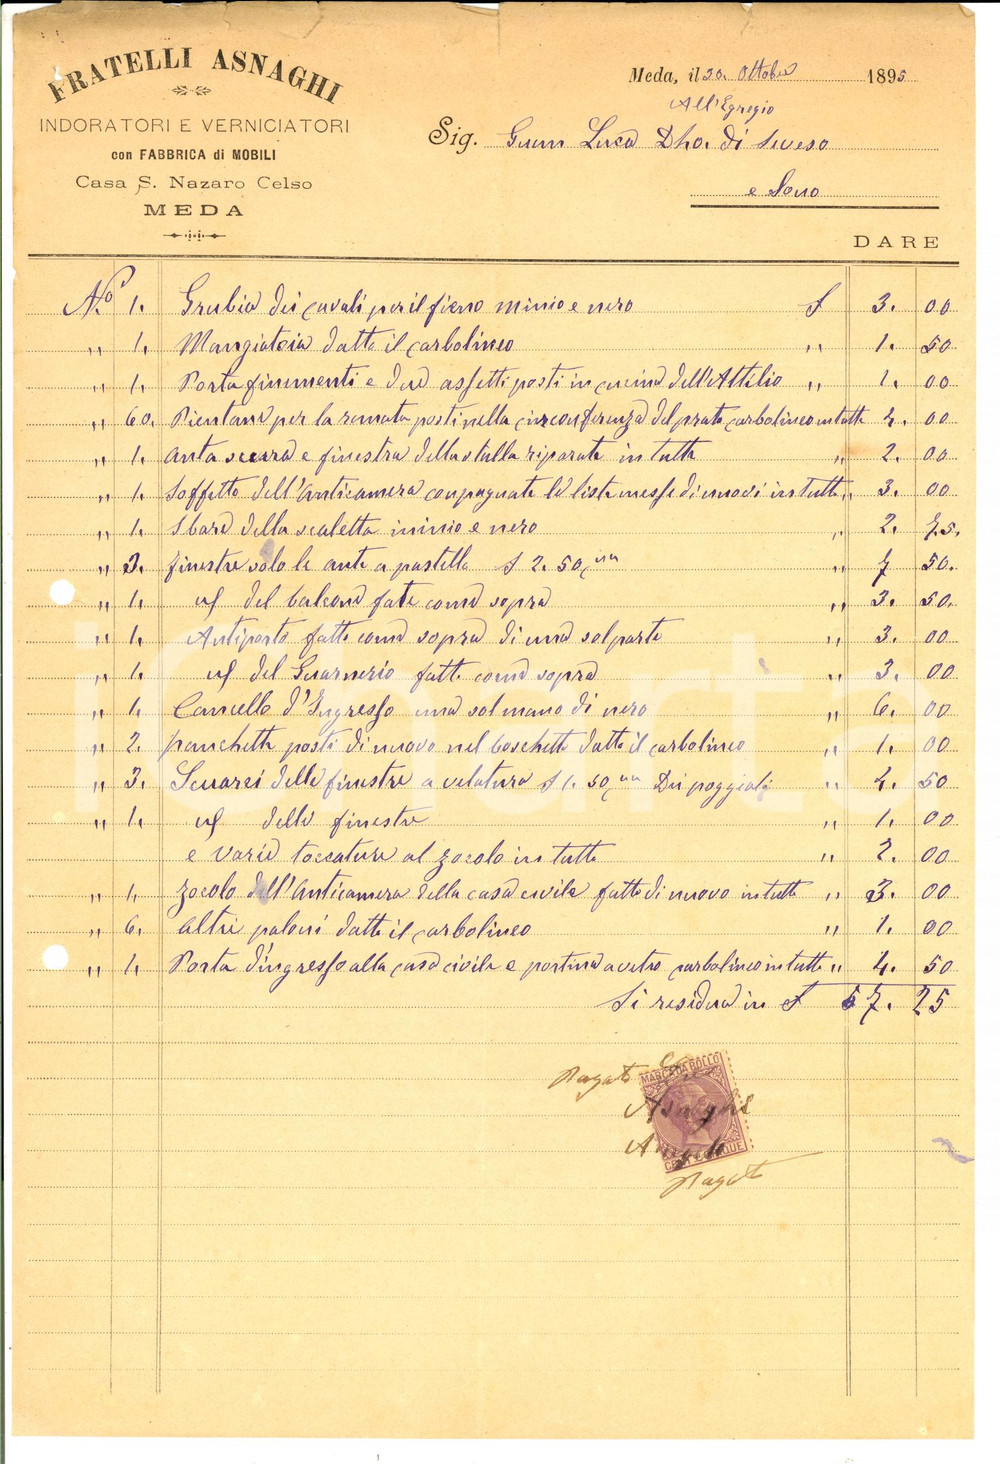 FRATELLI ASNAGHI
INDORATORI E VERNICIATORI
con FABBRICA di MOBILI
Casa S. Nazaro Celso
MEDA
Meda, il 20. Ottobre 1895
All'Egregio
Sig. Luca Dho. di Seveso
e Sono
DARE
No. 1. Grubia dei cavali per il fieno minio e nero £ 3. 00
" 1. Mangiatoia datto il carbolineo " 1. 50
" 1. Porta finimenti e due assetti posti in cucina dell'Attilio " 1. 00
" 60. Piantane per la ramata posti nella circonferenza del prato carbolineo in tutto 4. 00
" 1. anta scurra e finestra della stalla riparata in tutto " 2. 00
" 1. Soffetto dell'Anticamera conpagnato le liste messe di nuovi in tutto " 3. 00
" 1. Sbare della scaletta minio e nero " 2. 75.
" 3. finestre solo le ante a pastella £ 2. 50 una " 7 50.
" 1. id del balcone fate come sopra " 3. 50.
" 1. Antiporto fatto come sopra di una sol parte " 3. 00
" 1. id del Guarnerio fatto come sopra " 3. 00
" 1. Cancello d'Ingresso una sol mano di nero " 6. 00
" 2. panchette posti di nuovo nel boschetto datto il carbolineo " 1. 00
" 3. Scuarsi delle finestre a velatura £ 1. 50 una Dei poggiali " 4. 50
" 1. id delle finestre " 1. 00
e varie toccature al zocolo in tutto " 2. 00
" 1. zocolo dell'Anticamera della casa civile fatto di nuovo in tutto " 3. 00
" 6. altri paloni datto il carbolineo " 1. 00
" 1. Porta d'ingresso alla casa civile e portina a vetro carbolineo in tutto " 4. 50
Si residua in £ 57. 25
Pagato
MARCA DA BOLLO
Asnaghi
Angelo
Pagato